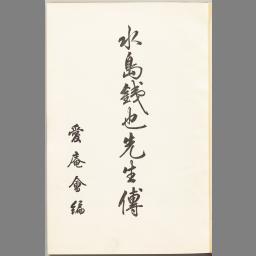 水島銕也先生傳
愛庵會編